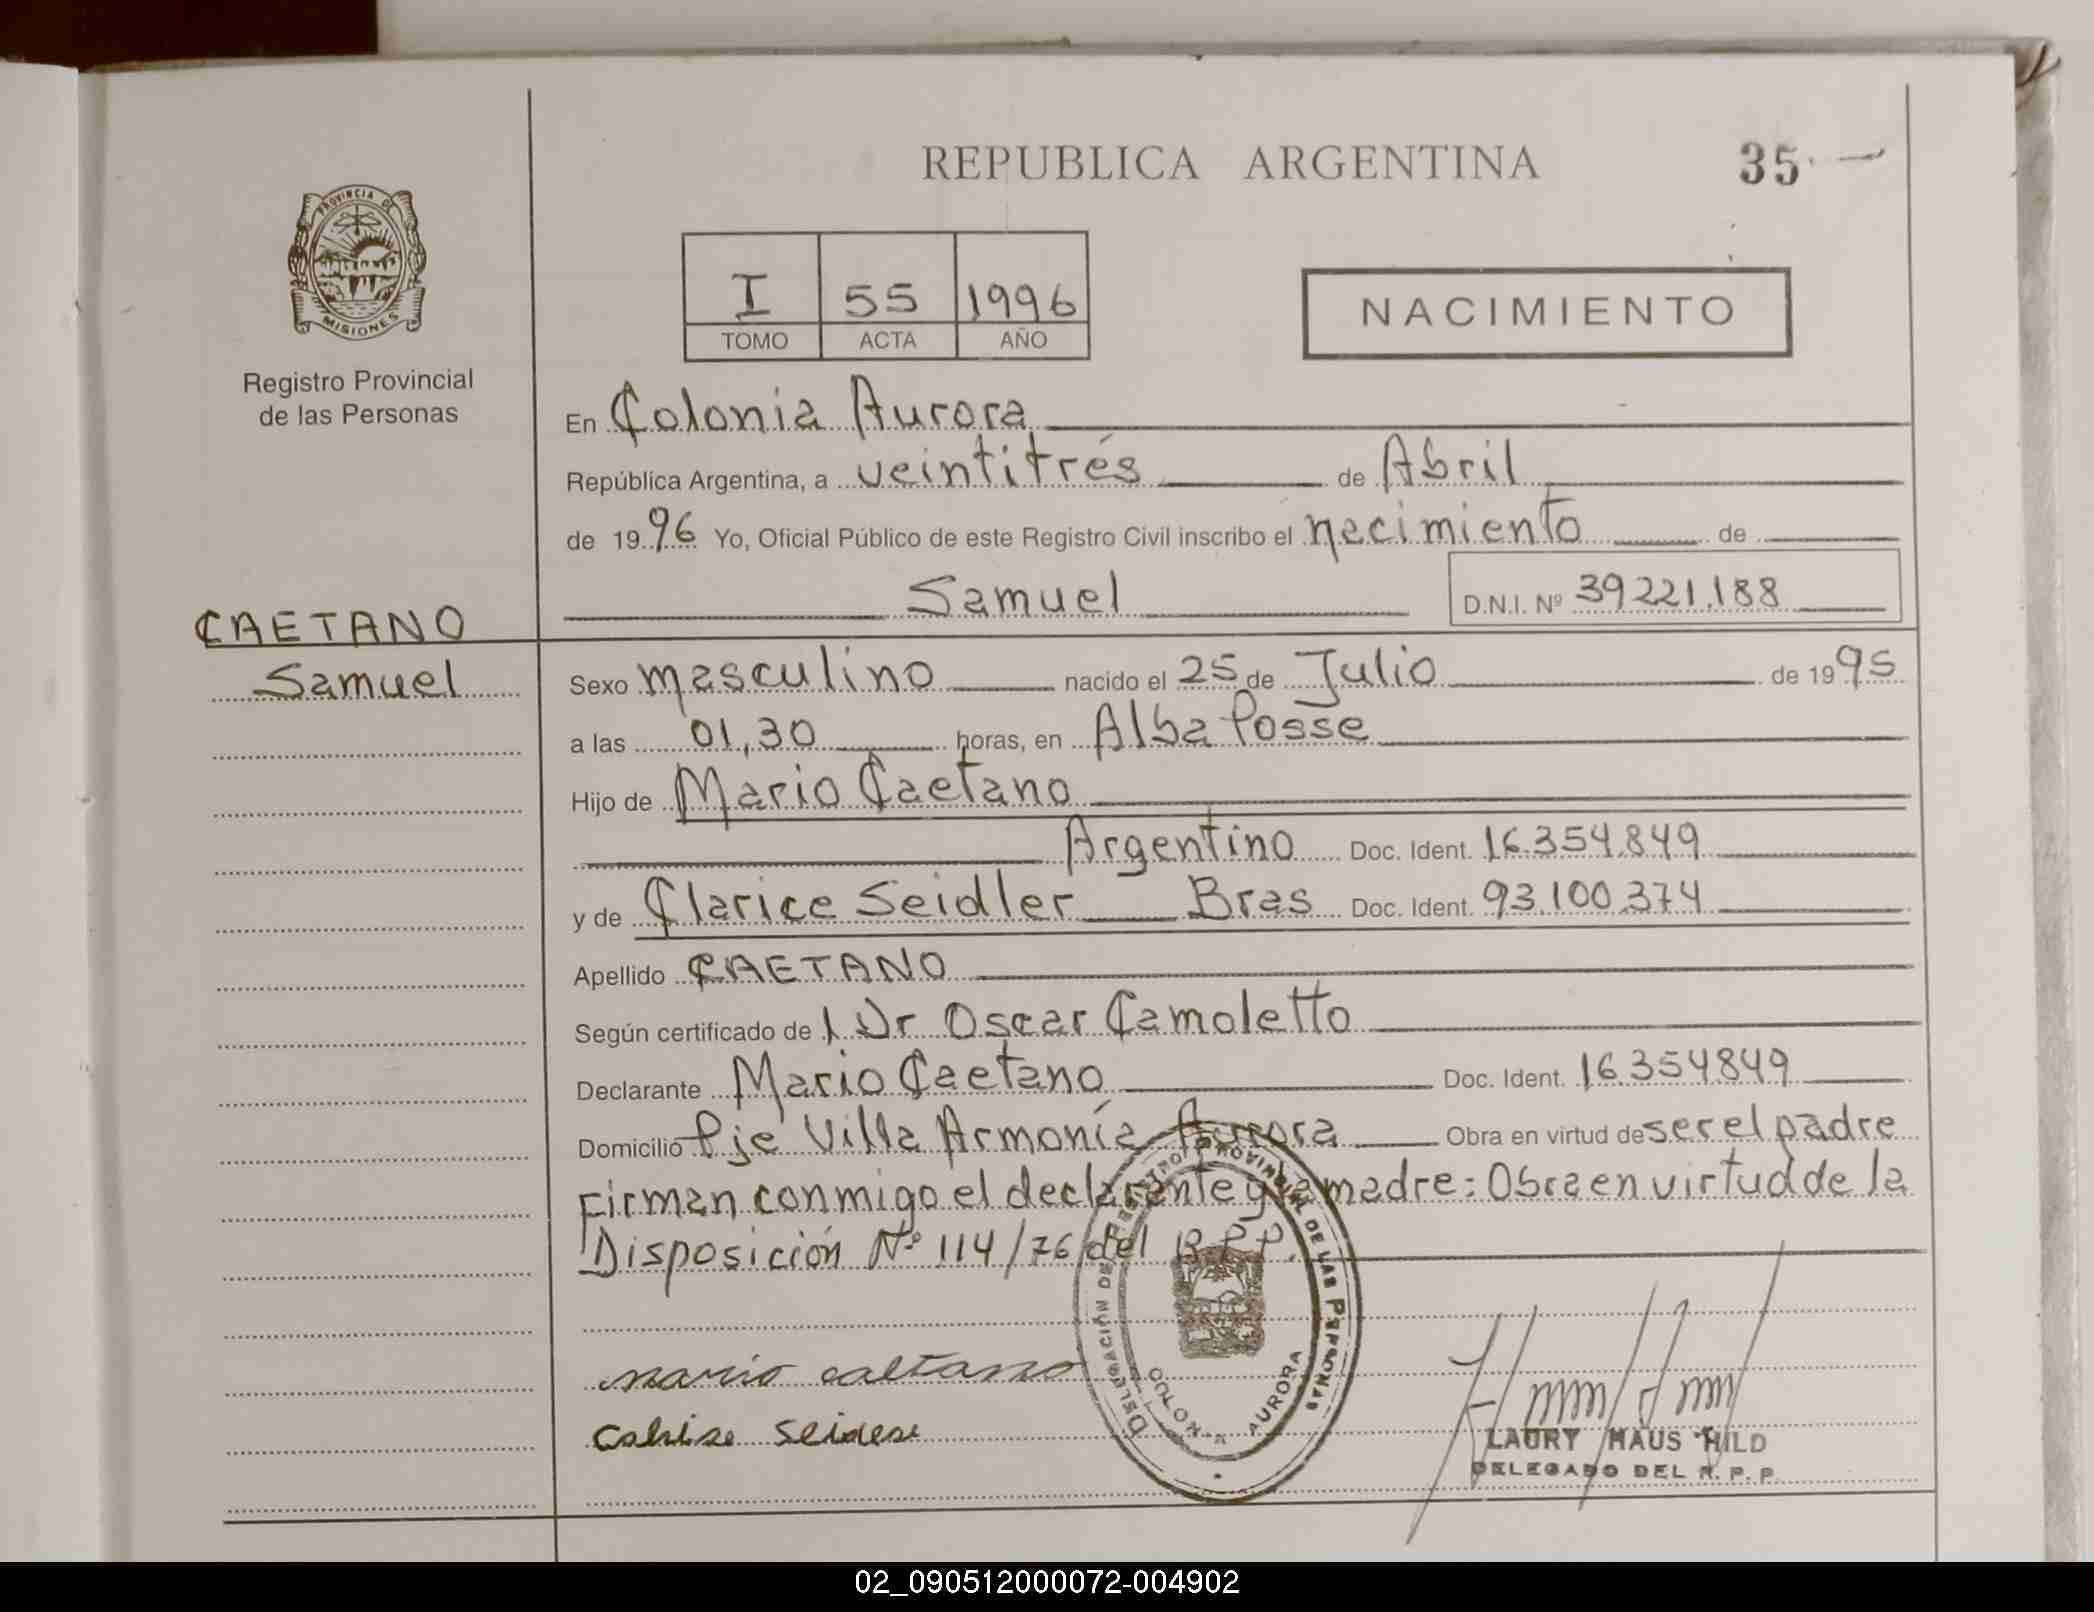 REPUBLICA ARGENTINA
35
PROVINCIA DE
MISIONES
Registro Provincial
de las Personas
I 55 1996
TOMO ACTA AÑO
NACIMIENTO
En Colonia Aurora
República Argentina, a veintitrés de Abril
de 1996 Yo, Oficial Público de este Registro Civil inscribo el necimiento de
Samuel D.N.I. Nº 39221.188
CAETANO
Samuel
Sexo masculino nacido el 25 de Julio de 1995
a las 01,30 horas, en Alba Posse
Hijo de Mario Caetano
Argentino Doc. Ident. 16.354.849
y de Clarice Seidler Bras Doc. Ident. 93.100.374
Apellido CAETANO
Según certificado de l Dr Oscar Camoletto
Declarante Mario Caetano Doc. Ident. 16.354849
Domicilio Pje Villa Armonía Aurora Obra en virtud de ser el padre
Firman conmigo el declarante y la madre: Obra en virtud de la
Disposición Nº 114/76 del R.P.P.
DELEGACIÓN DEL REGISTRO PROVINCIAL DE LAS PERSONAS
COLONIA AURORA
mario caetano
LAURY HAUS HILD
DELEGADO DEL R. P. P.
02_090512000072-004902